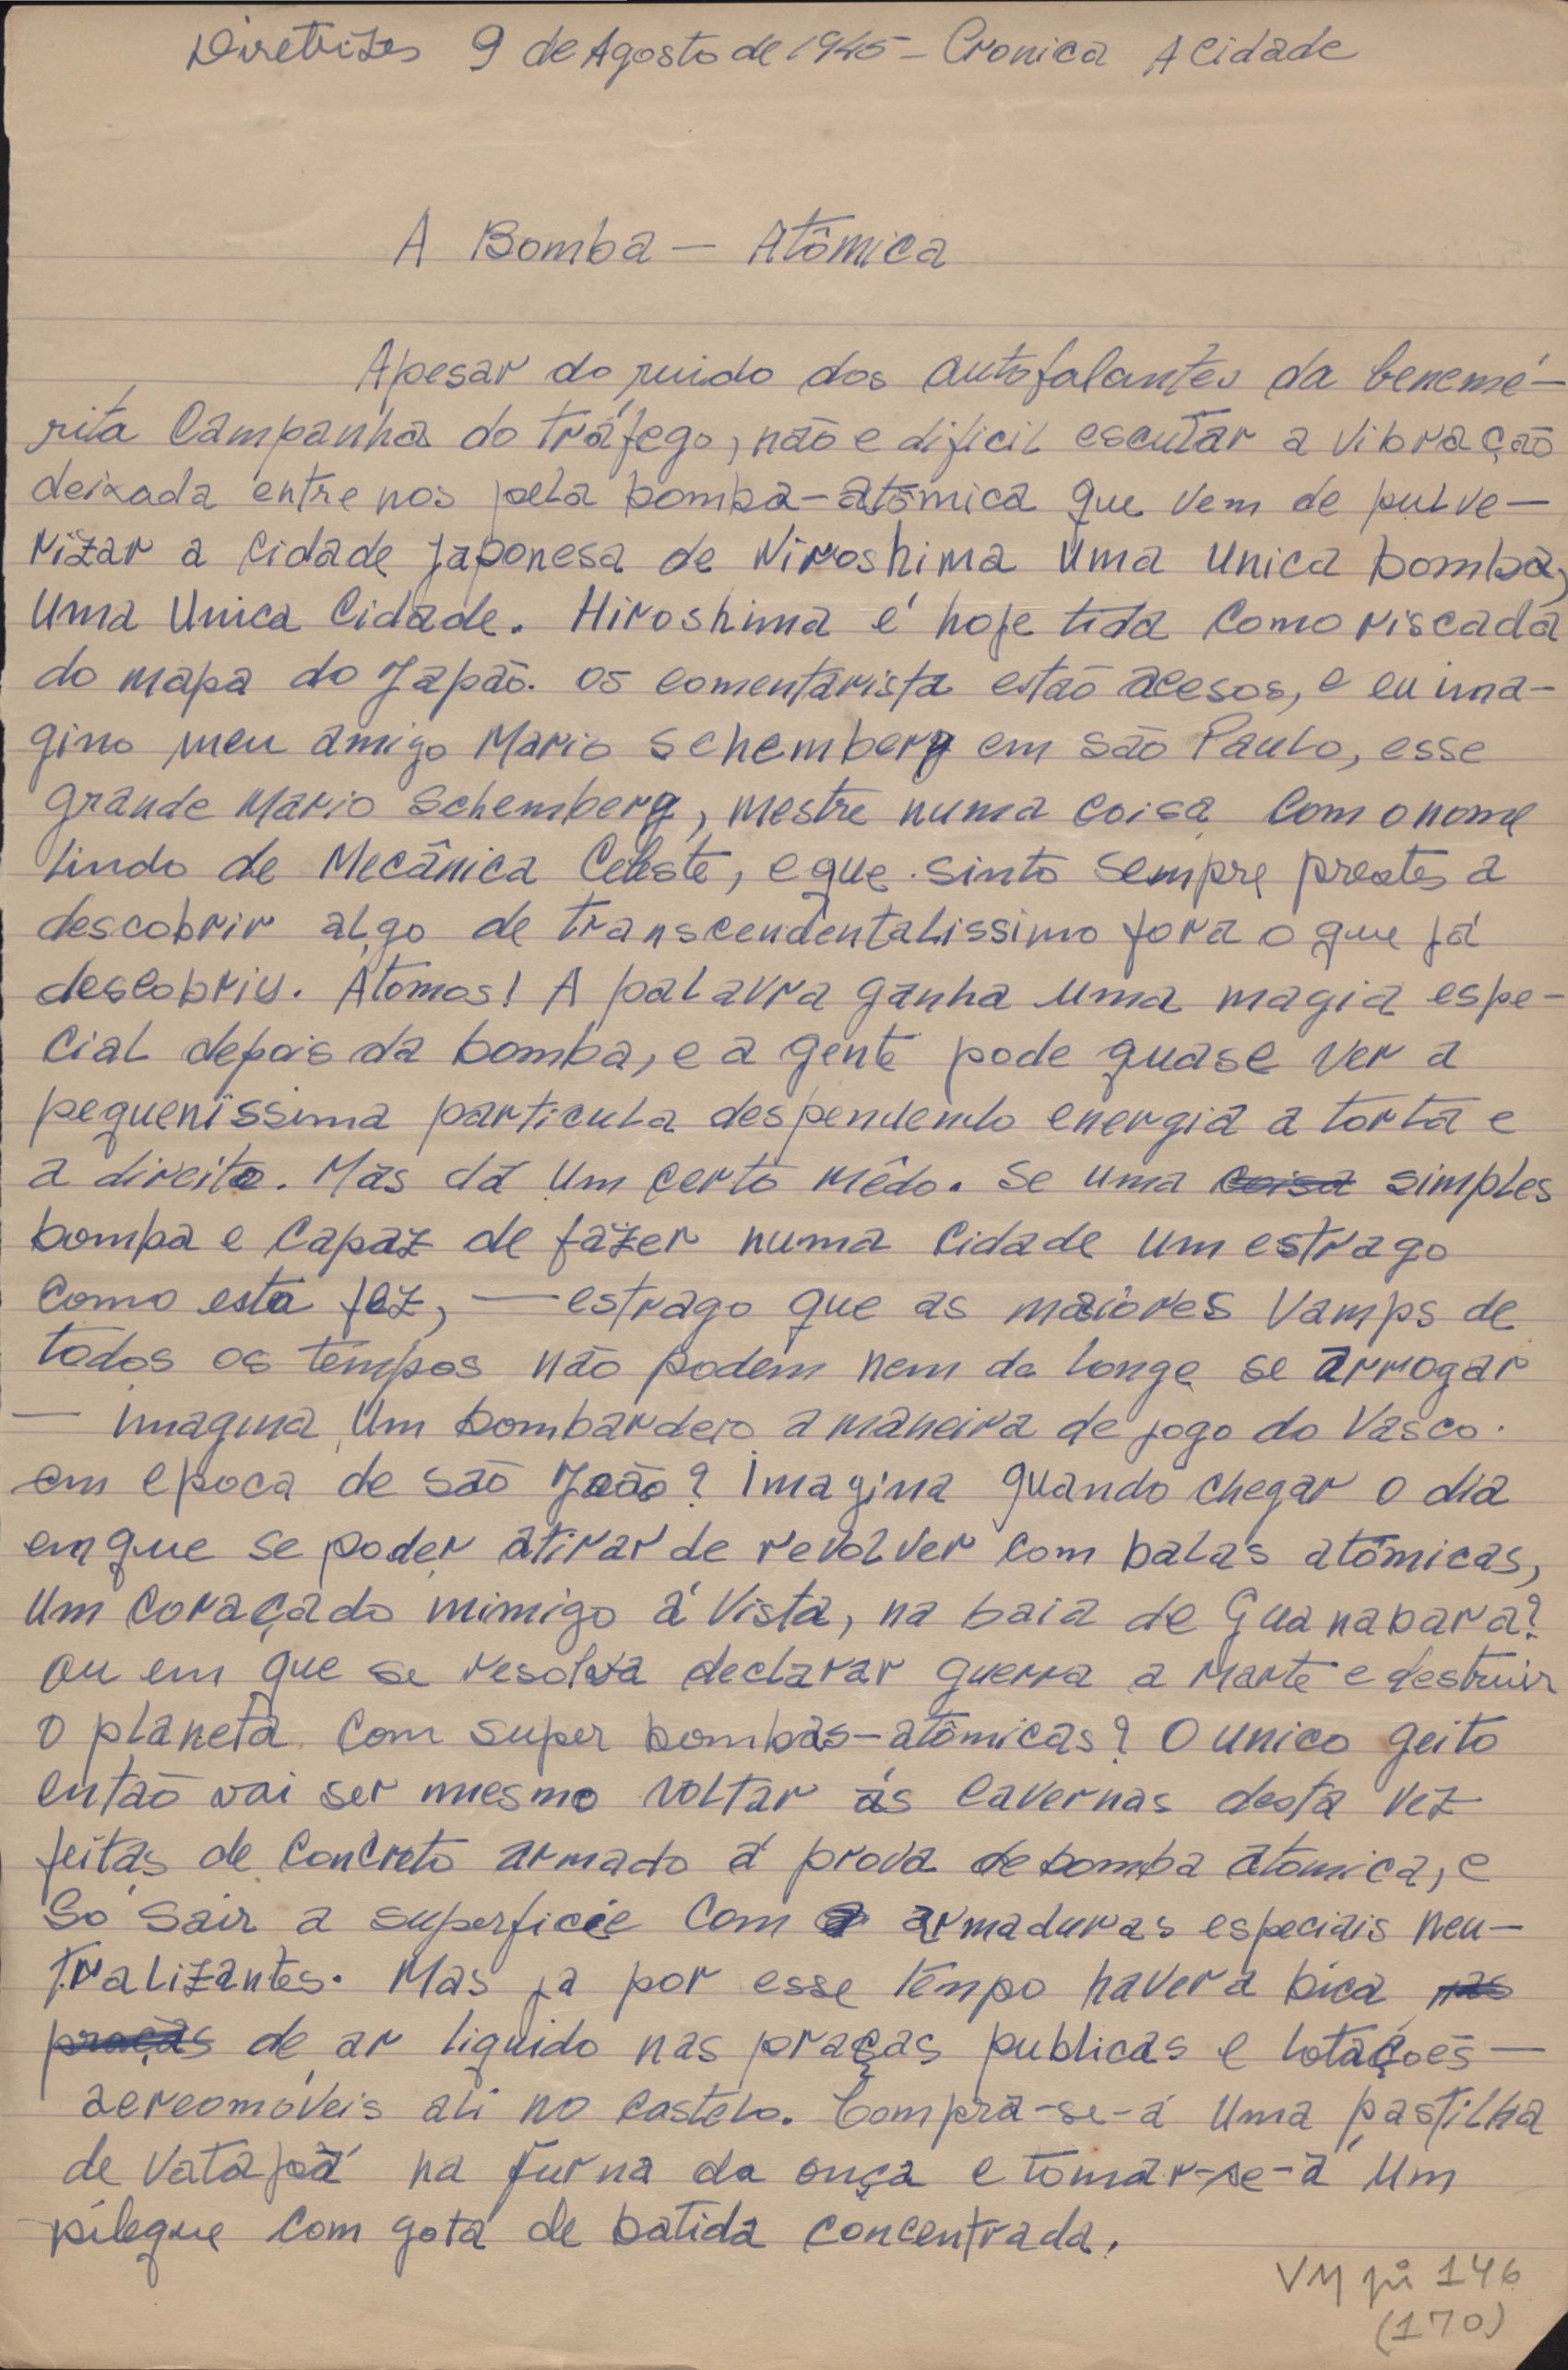 Diretrizes 9 de Agosto de 1945 - Cronica A Cidade
A Bomba - Atômica
Apesar do ruido dos autofalantes da benemé-
rita Campanha do tráfego, não e dificil escutar a vibração
deixada entre nos pela bomba-atômica que vem de pulve-
rizar a cidade japonesa de Niroshima uma unica bomba,
uma unica cidade. Hiroshima é hoje tida como riscada
do mapa do Japão. os comentarista estão acesos, e eu ima-
gino meu amigo Mario Schemberg em são Paulo, esse
grande Mario Schemberg, mestre numa coisa com o nome
lindo de Mecânica Celeste, e que sinto sempre prestes a
descobrir algo de transcendentalissimo fora o que já
descobriu. Átomos! A palavra ganha uma magia espe-
cial depois da bomba, e a gente pode quase ver a
pequenissima particula despendendo energia a torta e
a direita. Mas dá um certo mêdo. se uma coisa simples
bompa e capaz de fazer numa cidade um estrago
como esta fez, — estrago que as maiores vamps de
todos os tempos não podem nem da longe se arrogar
— imagina um bombardeio a maneira de jogo do Vasco.
em epoca de são João? imagina quando chegar o dia
em que se poder atirar de revolver com balas atômicas,
um coraçado inimigo á vista, na baia de Guanabara?
ou em que se resolva declarar guerra a Marte e destruir
o planeta com super bombas-atômicas? O unico geito
então vai ser mesmo voltar ás cavernas desta vez
feitas de concreto armado á prova de bomba atomica, e
Só sair a superficie com a armaduras especiais neu-
tralizantes. Mas ja por esse tempo havera bica nas
praças de ar liquido nas praças publicas e lotações-
aereomóveis ali no castelo. Compra-se-á uma pastilha
de vatapá na furna da onça e tomar-se-á um
pileque com gota de batida concentrada.
VM pi 146
(170)